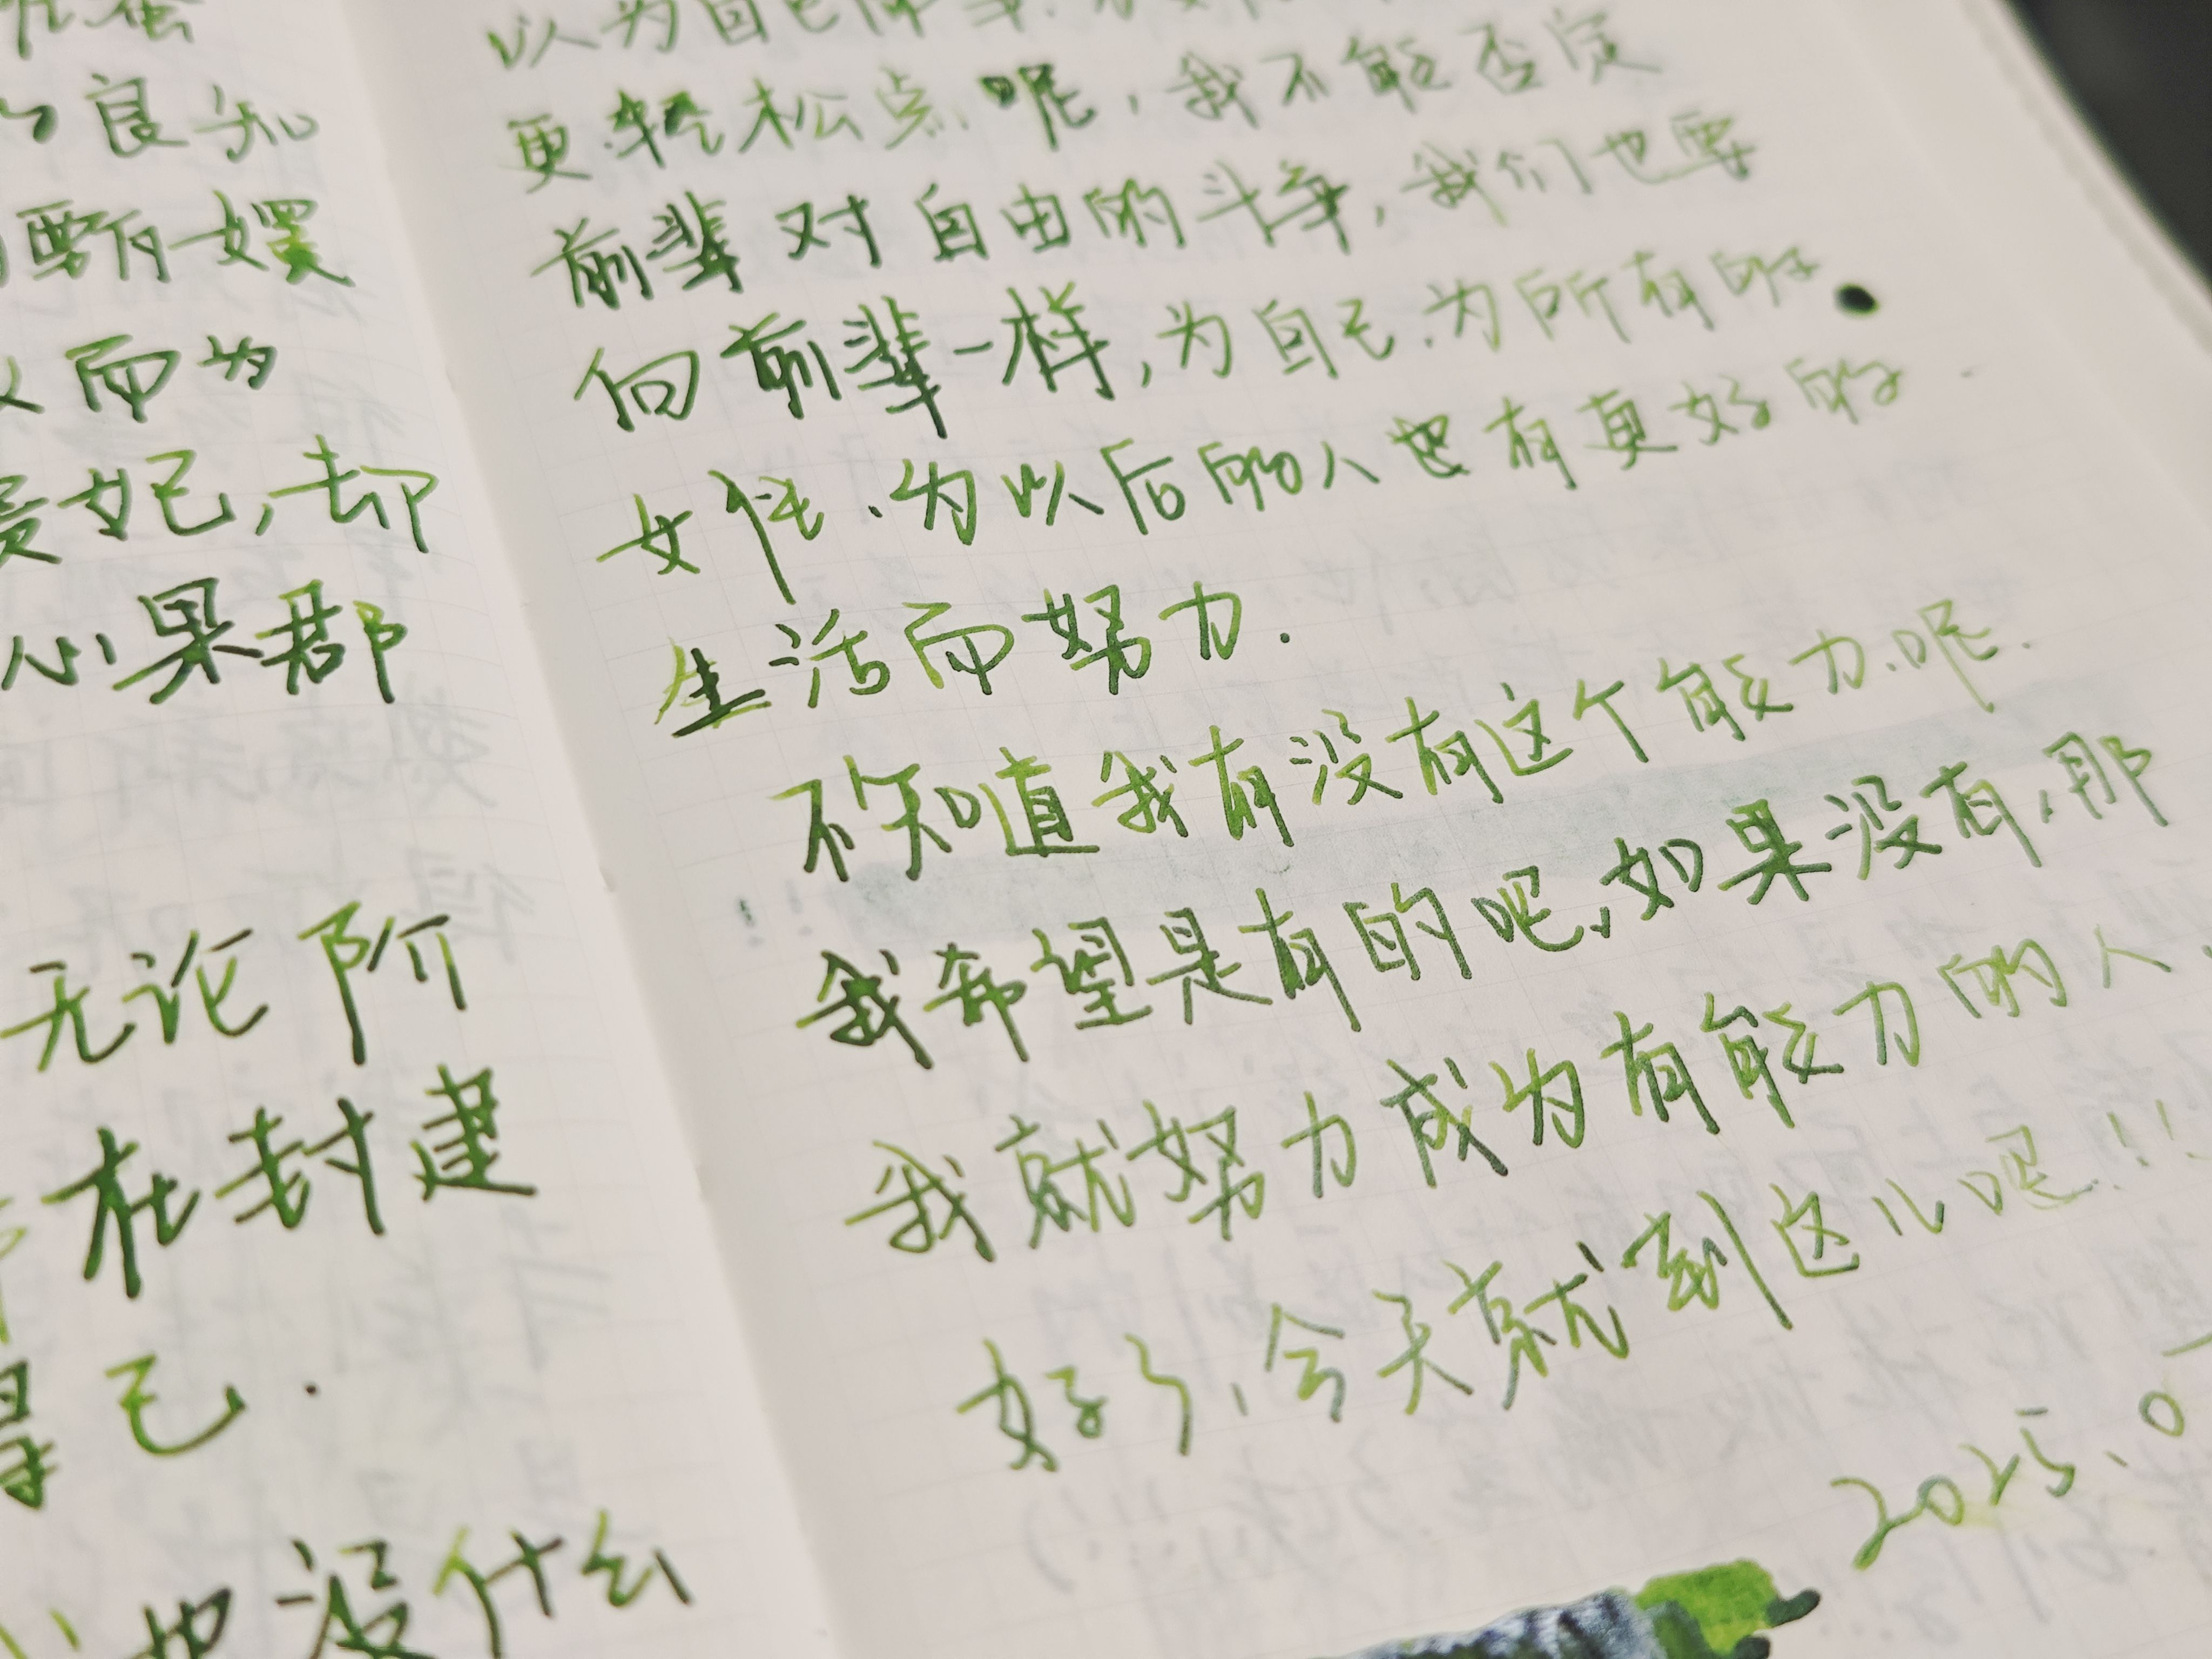 良知
甄嬛
而为
贵妃，却
心果郡
无论阶
在封建
己．
也没什么
以为自己
更轻松点呢，我不能否定
前辈对自由的斗争，我们也要
向前辈一样，为自己、为所有的
女性、为以后的人也有更好的
生活而努力．
不知道我有没有这个能力呢．
我希望是有的吧，如果没有，那
我就努力成为有能力的人．
好了，今天就到这儿吧！！
2025.0